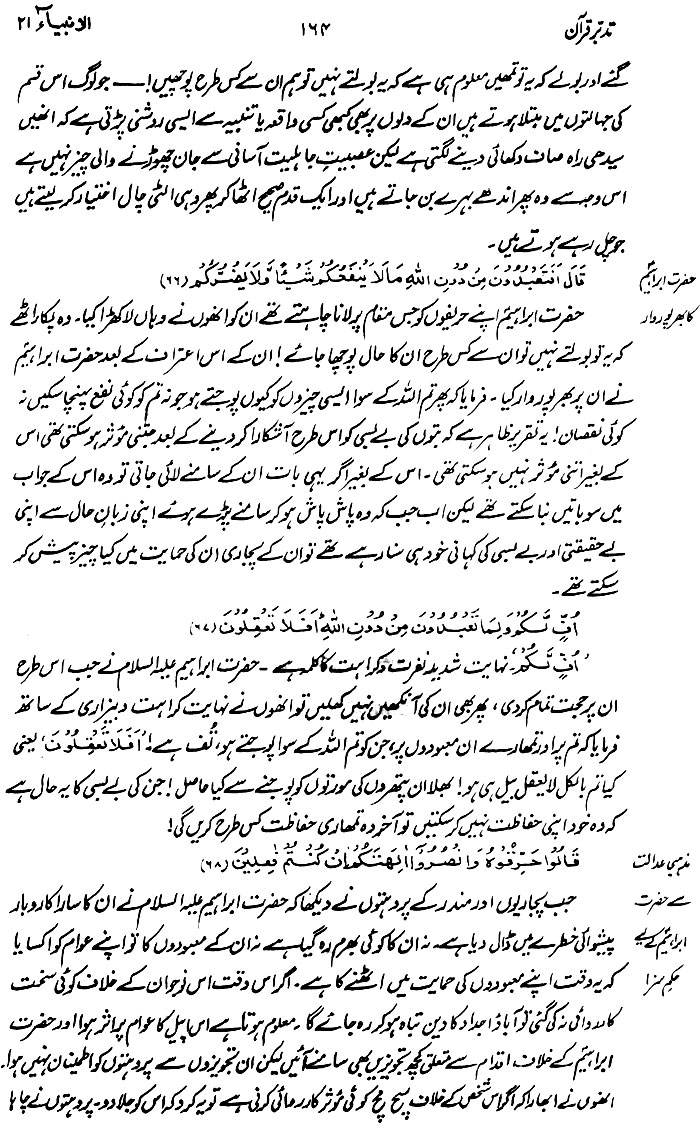 تدبرِ قرآن ۱۶۴ الانبیاء ۲۱
گئے اور بولے کہ یہ تو تمھیں معلوم ہی ہے کہ یہ بولتے نہیں تو ہم ان سے کس طرح پوچھیں! ــــ جو لوگ اس قسم
کی جہالتوں میں مبتلا ہوتے ہیں ان کے دلوں پر بھی کبھی کسی واقعہ یا تنبیہ سے ایسی روشنی پڑتی ہے کہ انھیں
سیدھی راہ صاف دکھائی دینے لگتی ہے لیکن عصبیتِ جاہلیت آسانی سے جان چھوڑنے والی چیز نہیں ہے
اس وجہ سے وہ پھر اندھے بہرے بن جاتے ہیں اور ایک قدم صحیح اٹھا کر پھر وہی الٹی چال اختیار کر لیتے ہیں
جو چل رہے ہوتے ہیں۔
حضرت ابراہیمؑ
قَالَ اَفَتَعْبُدُوْنَ مِنْ دُوْنِ اللهِ مَا لَا يَنْفَعُكُمْ شَيْئًا وَّلَا يَضُرُّكُمْ (۶۶)
کا بھرپور وار
حضرت ابراہیمؑ اپنے حریفوں کو جس مقام پر لانا چاہتے تھے ان کو انھوں نے وہاں لا کھڑا کیا۔ وہ پکار اٹھے
کہ یہ تو بولتے نہیں تو ان سے کس طرح ان کا حال پوچھا جائے! ان کے اس اعتراف کے بعد حضرت ابراہیمؑ
نے ان پر بھرپور وار کیا۔ فرمایا کہ پھر تم اللہ کے سوا ایسی چیزوں کو کیوں پوجتے ہو جو نہ تم کو کوئی نفع پہنچا سکیں نہ
کوئی نقصان! یہ تقریر ظاہر ہے کہ بتوں کی بے بسی کو اس طرح آشکارا کر دینے کے بعد جتنی مؤثر ہو سکتی تھی اس
کے بغیر اتنی مؤثر نہیں ہو سکتی تھی۔ اس کے بغیر اگر یہی بات ان کے سامنے لائی جاتی تو وہ اس کے جواب
میں سو باتیں بنا سکتے تھے لیکن اب جب کہ وہ پاش پاش ہو کر سامنے پڑے ہوئے اپنی زبانِ حال سے اپنی
بے حقیقتی اور بے بسی کی کہانی خود ہی سنا رہے تھے تو ان کے پجاری ان کی حمایت میں کیا چیز پیش کر
سکتے تھے۔
اُفٍّ لَّكُمْ وَلِمَا تَعْبُدُوْنَ مِنْ دُوْنِ اللهِ اَفَلَا تَعْقِلُوْنَ (۶۷)
’اُفٍّ لَّكُمْ‘ نہایت شدید نفرت و کراہت کا کلمہ ہے۔ حضرت ابراہیم علیہ السلام نے جب اس طرح
ان پر حجت تمام کر دی، پھر بھی ان کی آنکھیں نہیں کھلیں تو انھوں نے نہایت کراہت و بیزاری کے ساتھ
فرمایا کہ تم پر اور تمھارے ان معبودوں پر، جن کو تم اللہ کے سوا پوجتے ہو، تُف ہے! ’اَفَلَا تَعْقِلُوْنَ‘ یعنی
کیا تم بالکل لایعقل بیل ہی ہو! بھلا ان پتھروں کی مورتوں کو پوجنے سے کیا حاصل! جن کی بے بسی کا یہ حال ہے
کہ وہ خود اپنی حفاظت نہیں کر سکتیں تو آخر وہ تمھاری حفاظت کس طرح کریں گی!
مذہبی عدالت
قَالُوْا حَرِّقُوْهُ وَانْصُرُوْٓا اٰلِهَتَكُمْ اِنْ كُنْتُمْ فٰعِلِيْنَ (۶۸)
سے حضرت
جب پجاریوں اور مندر کے پروہتوں نے دیکھا کہ حضرت ابراہیم علیہ السلام نے ان کا سارا کاروبار
ابراہیمؑ کے لیے
پیشوائی خطرے میں ڈال دیا ہے۔ نہ ان کا کوئی بھرم رہ گیا ہے نہ ان کے معبودوں کا تو اپنے عوام کو اکسایا
حکمِ سزا
کہ یہ وقت اپنے معبودوں کی حمایت میں اٹھنے کا ہے۔ اگر اس وقت اس نوجوان کے خلاف کوئی سخت
کارروائی نہ کی گئی تو آباؤ اجداد کا دین تباہ ہو کر رہ جائے گا۔ معلوم ہوتا ہے اس اپیل کا عوام پر اثر ہوا اور حضرت
ابراہیمؑ کے خلاف اقدام سے متعلق کچھ تجویزیں بھی سامنے آئیں لیکن ان تجویزوں سے پروہتوں کو اطمینان نہیں ہوا۔
انھوں نے ابھارا کہ اگر اس شخص کے خلاف سچ مچ کوئی مؤثر کارروائی کرنی ہے تو یہ کرو کہ اس کو جلا دو۔ پروہتوں نے چاہا